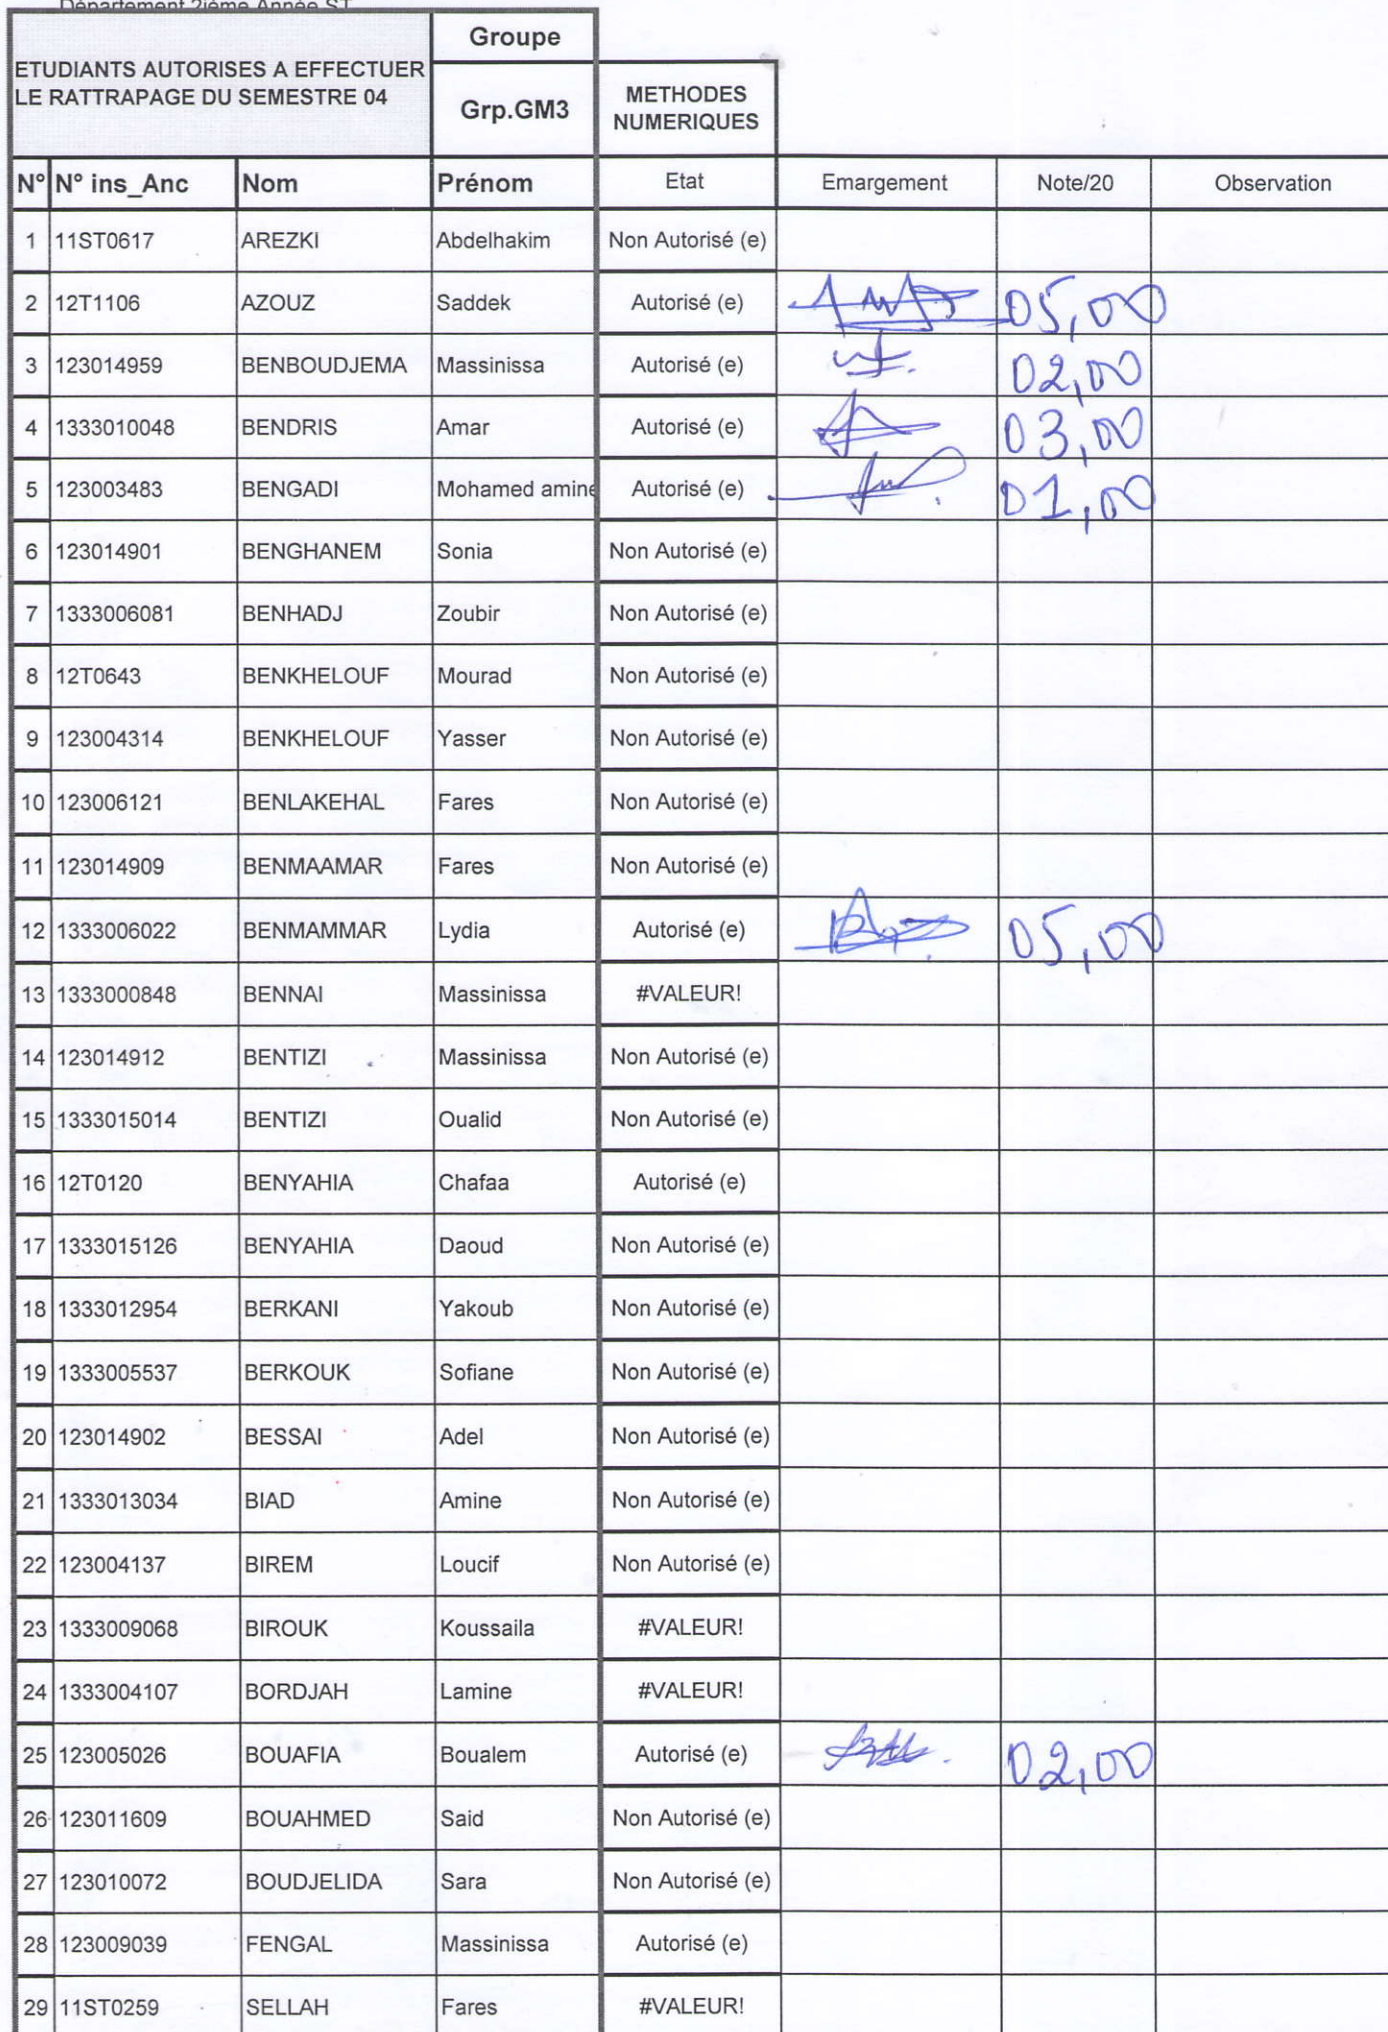 Département 2ième Année ST
ETUDIANTS AUTORISES A EFFECTUER
LE RATTRAPAGE DU SEMESTRE 04
Groupe
Grp.GM3
METHODES
NUMERIQUES
N° N° ins_Anc Nom Prénom Etat Emargement Note/20 Observation
1 11ST0617 AREZKI Abdelhakim Non Autorisé (e)
2 12T1106 AZOUZ Saddek Autorisé (e) 05,00
3 123014959 BENBOUDJEMA Massinissa Autorisé (e) 02,00
4 1333010048 BENDRIS Amar Autorisé (e) 03,00
5 123003483 BENGADI Mohamed amine Autorisé (e) 01,00
6 123014901 BENGHANEM Sonia Non Autorisé (e)
7 1333006081 BENHADJ Zoubir Non Autorisé (e)
8 12T0643 BENKHELOUF Mourad Non Autorisé (e)
9 123004314 BENKHELOUF Yasser Non Autorisé (e)
10 123006121 BENLAKEHAL Fares Non Autorisé (e)
11 123014909 BENMAAMAR Fares Non Autorisé (e)
12 1333006022 BENMAMMAR Lydia Autorisé (e) 05,00
13 1333000848 BENNAI Massinissa #VALEUR!
14 123014912 BENTIZI Massinissa Non Autorisé (e)
15 1333015014 BENTIZI Oualid Non Autorisé (e)
16 12T0120 BENYAHIA Chafaa Autorisé (e)
17 1333015126 BENYAHIA Daoud Non Autorisé (e)
18 1333012954 BERKANI Yakoub Non Autorisé (e)
19 1333005537 BERKOUK Sofiane Non Autorisé (e)
20 123014902 BESSAI Adel Non Autorisé (e)
21 1333013034 BIAD Amine Non Autorisé (e)
22 123004137 BIREM Loucif Non Autorisé (e)
23 1333009068 BIROUK Koussaila #VALEUR!
24 1333004107 BORDJAH Lamine #VALEUR!
25 123005026 BOUAFIA Boualem Autorisé (e) 02,00
26 123011609 BOUAHMED Said Non Autorisé (e)
27 123010072 BOUDJELIDA Sara Non Autorisé (e)
28 123009039 FENGAL Massinissa Autorisé (e)
29 11ST0259 SELLAH Fares #VALEUR!